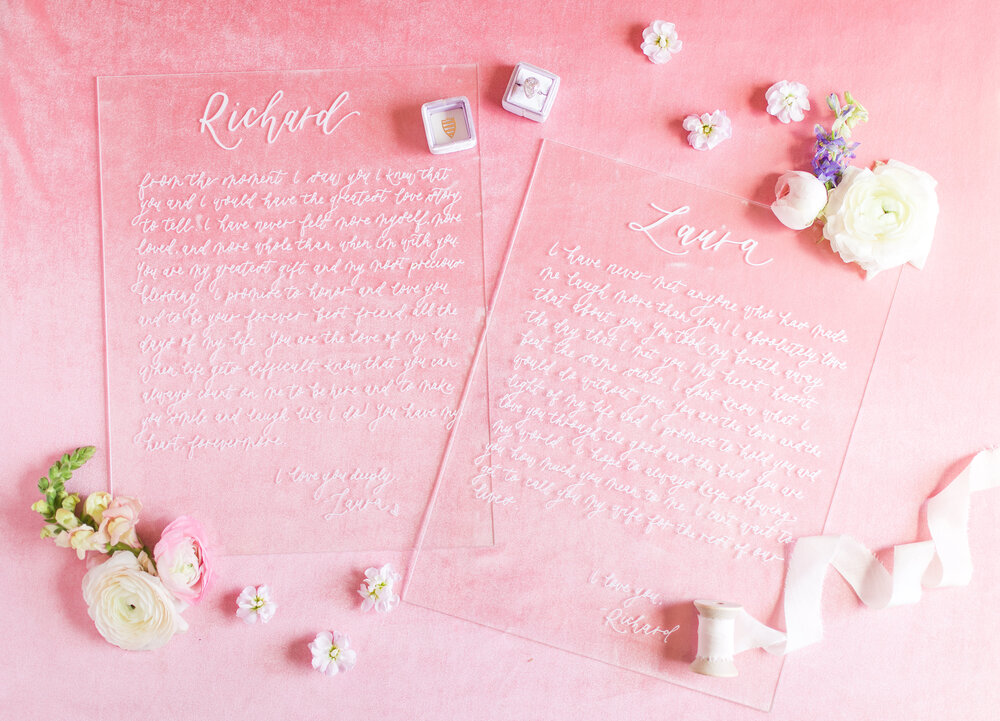 Richard
from the moment i saw you i knew that
you and i would have the greatest love story
to tell. i have never felt more myself, more
loved, and more whole than when i'm with you.
You are my greatest gift and my most precious
blessing. i promise to honor and love you
and to be your forever best friend, all the
days of my life. You are the love of my life.
when life gets difficult, know that you can
always count on me to be here and to make
you smile and laugh like i do! You have my
heart, forevermore.
i love you deeply,
Laura
Laura
i have never met anyone who has made
me laugh more than you! i absolutely love
that about you. You took my breath away
the day that i met you. My heart hasn't
beat the same since. i don't know what i
would do without you. You are the love and the
light of my life and i promise to hold you and
love you through the good and the bad. You are
my world. i hope to always keep showing
you how much you mean to me. i can't wait to
get to call you my wife for the rest of our
lives.
i love you,
-Richard